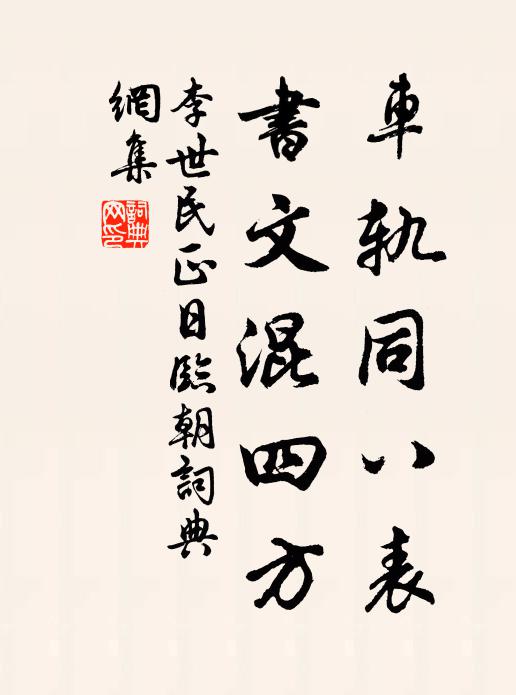 車軌同八表
書文混四方
李世民正日臨朝詞典
網集
詞典
网印